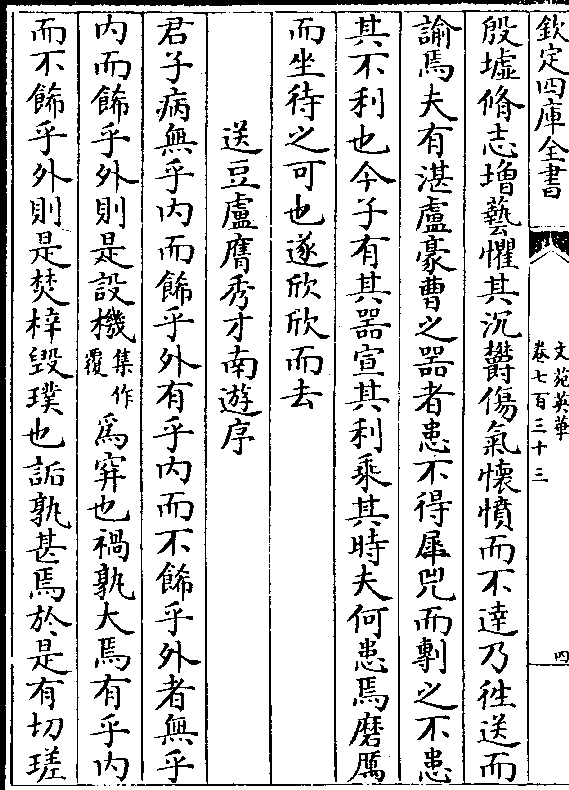 欽定四庫全書
文苑英華
卷七百三十三
四
殷墟脩志增藝懼其沉鬱傷氣懷憤而不達乃徃送而
諭焉夫有湛盧豪曹之器者患不得犀兕而剸之不患
其不利也今子有其器宣其利乘其時夫何患焉磨厲
而坐待之可也遂欣欣而去
送豆盧膺秀才南遊序
君子病無乎内而餙乎外有乎内而不餙乎外者無乎
内而餙乎外則是設機集作覆為穽也禍孰大焉有乎内
而不餙乎外則是焚梓毁璞也詬孰甚焉於是有切瑳